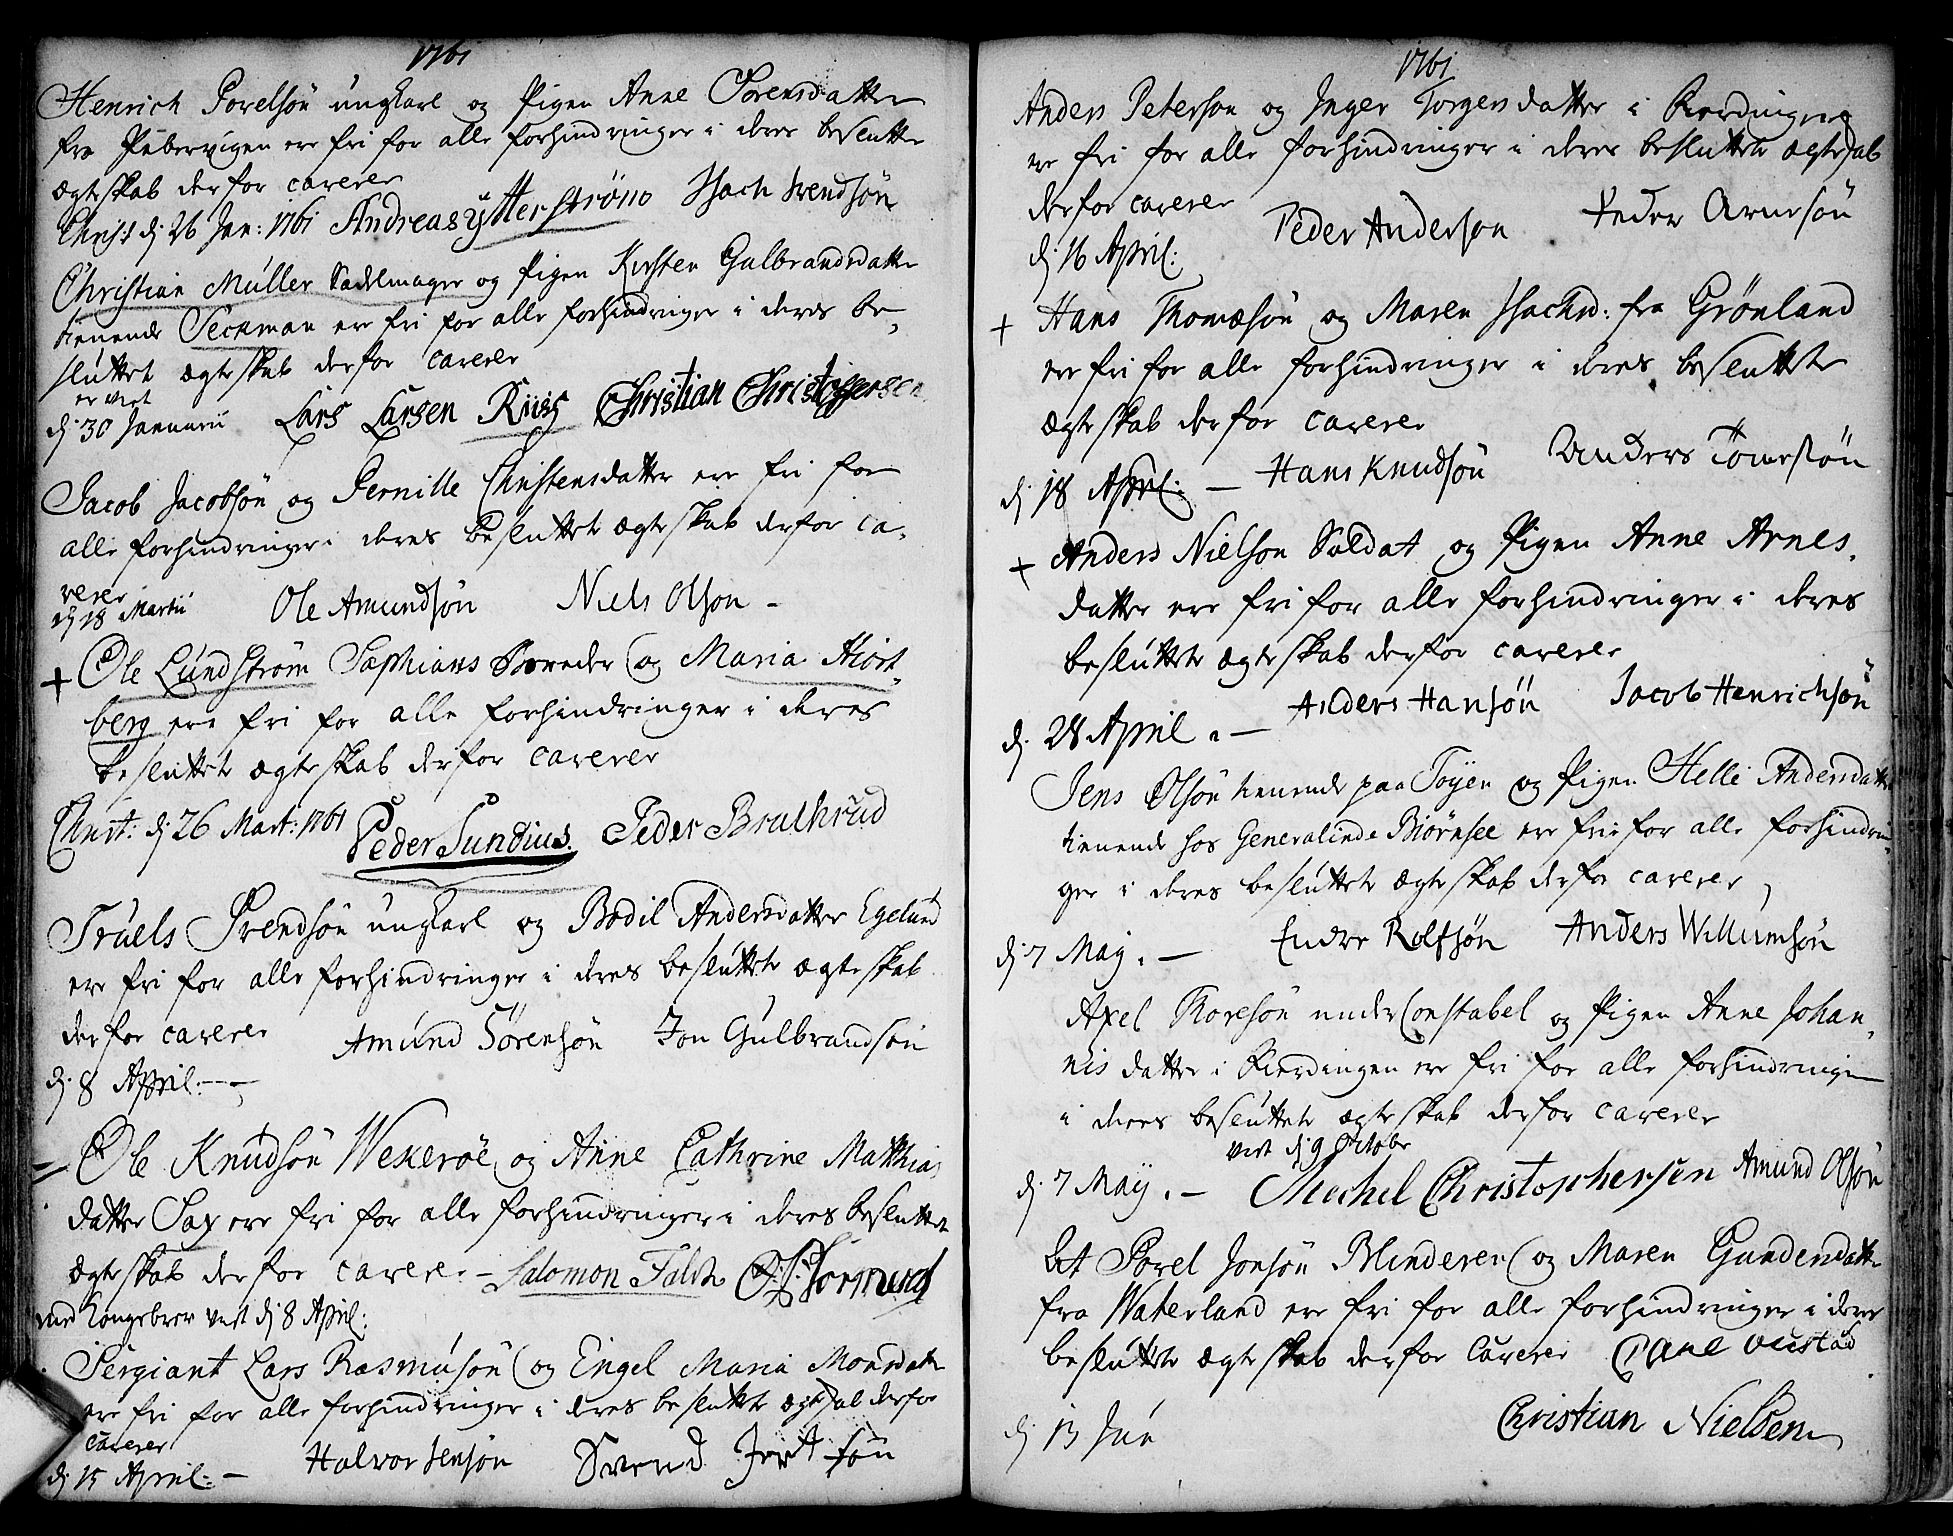 1761
Henrich Povelsøn ungkarl og Pigen Anne Sørensdatter
fra Pebervigen ere fri for alle forhindringer i deres besluttet
ægteskab derfor caverer
Christ d. 26 Jan: 1761 Andreas ytterstrøm Isach Svendsøn
Christian Müller Sadelmager og Pigen Kirsten Gulbrandsdatter
tienende Seckman ere fri for alle forhindringer i deres be-
sluttet ægteskab derfor caverer
er viet
d. 30 Januarii Lars Larsen Riiis Christian Christoffersen
Jacob Jacobsøn og Pernille Christensdatter ere fri for
alle forhindringer i deres besluttet ægteskab derfor ca-
verer
d 18 Martii Ole Amundsøn Niels Olson -
+ Ole Lundstrøm Saphians bereder og Maria Hiort-
berg ere fri for alle forhindringer i deres
besluttet ægteskab derfor caverer
Christ: d. 26 Mart: 1761 Peder Sundius. Peder Brathrud
Truels Svendsøn ungkarl og Bodil Andersdatter Egelund
ere fri for alle forhindringer i deres besluttet ægteskab
derfor caverer Amund Sörensøn Jon Gulbrandsøn
d. 8 April. - -
Ole Knudsøn Wekerøe og Anne Cathrine Matthias
datter Sax ere fri for alle forhindringer i deres besluttet
ægteskab derfor caverer - Salomon Falck
med kongebrev viet d. 8 April:
Sergiant Lars Rasmusøn og Engel Maria Monsdatter
ere fri for alle forhindringer i deres besluttet ægteskab derfor
caverer
d. 15 April: - Halvor Jensøn Svend
1761
Anders Peterson og Inger Torgersdatter i Rerdingen
ere fri for alle forhindringer i deres besluttet ægteskab
derfor caverer Peder Anderson Peder Arnesøn
d. 16 April:
+ Hans Thomæsøn og Maren Isachsd: fra Grønland
ere fri for alle forhindringer i deres besluttet
ægteskab derfor caverer
d. 18 April: - Hans Knudsøn Anders Tömesøn
+ Anders Nielson Soldat og Pigen Anne Arnes-
datter ere fri for alle forhindringer i deres
besluttet ægteskab derfor caverer
d. 28 April. - Anders Hansøn Jacob Henrichsøn
Jens Olsøn tienende paa Tøyen og Pigen Helle Andersdatter
tienende hos Generalinde Biørnsee ere fri for alle forhindrin-
ger i deres besluttet ægteskab derfor caverer,
d. 7 May. - Endre Rolfsøn Anders Willumsøn
Axel Thoresøn under Constabel og Pigen Anne Johan-
nis datter i Rierdingen ere fri for alle forhindringer
i deres besluttet ægteskab derfor caverer
viet d. 9 Octobr
d. 7 May. - Mechel Christophersen Amund Olsøn
At Povel Jonsøn Blinderen og Maren Gundersdatter
fra Waterland ere fri for alle forhindringer i deres
besluttet ægteskab derfor Caverer
d. 13 Jun Christian Nielsen